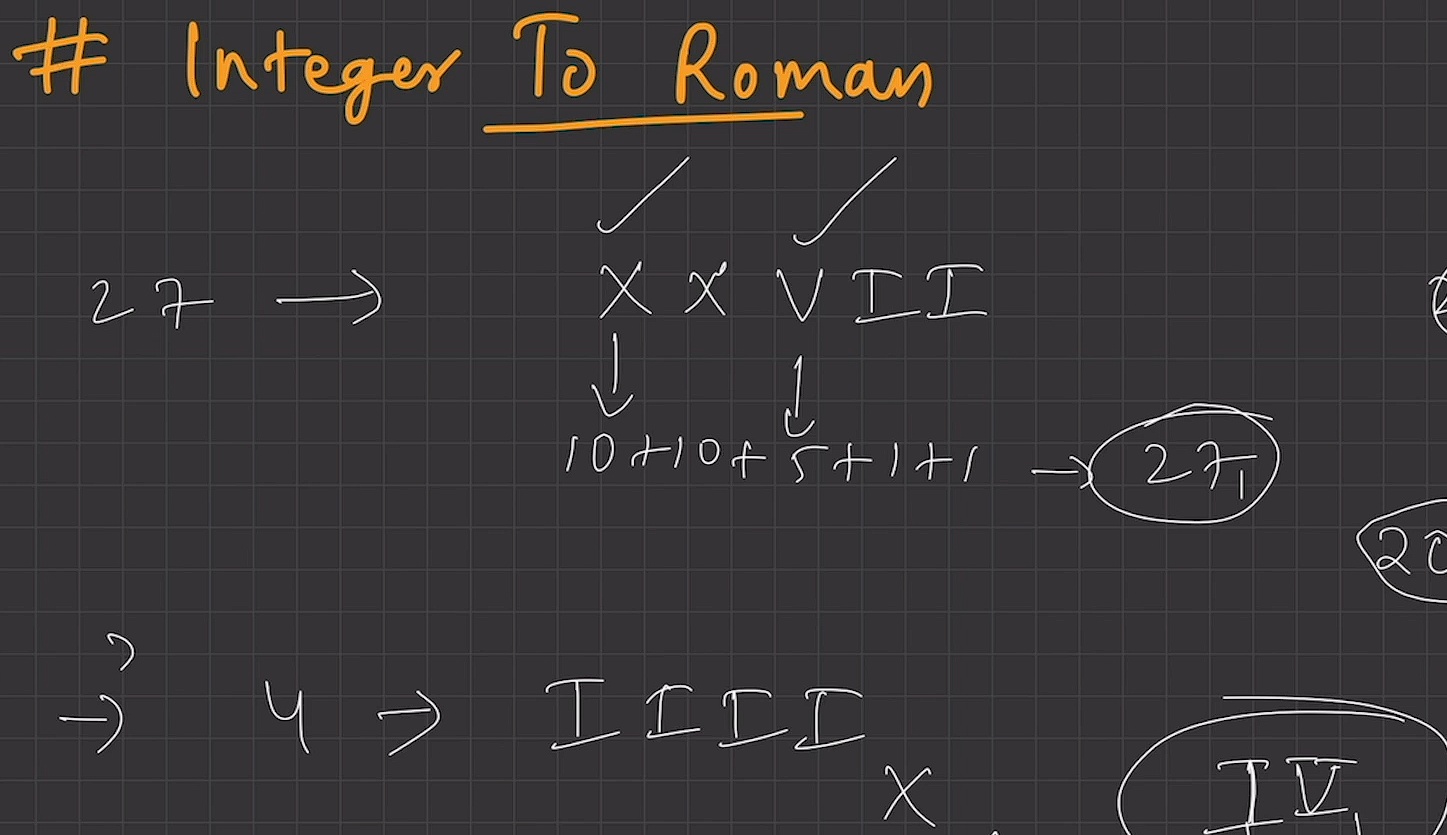 # Integer To Roman
27 → XXVII
10+10+5+1+1 → 27
20
→ 4 → IIII
X IV